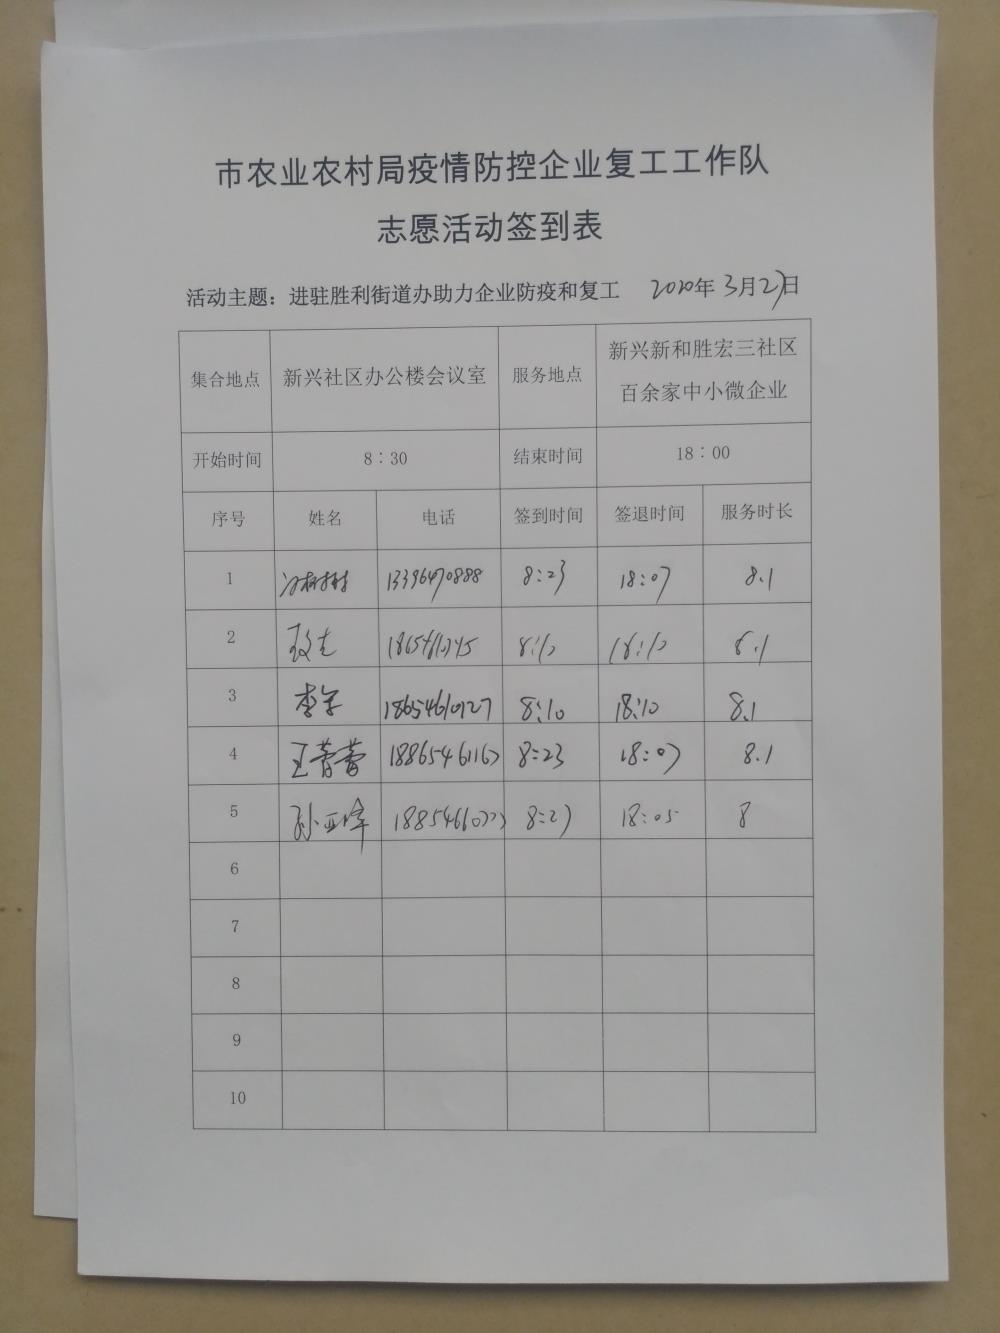 市农业农村局疫情防控企业复工工作队
志愿活动签到表
活动主题：进驻胜利街道办助力企业防疫和复工 2020年3月27日
集合地点 新兴社区办公楼会议室 服务地点 新兴新和胜宏三社区
百余家中小微企业
开始时间 8：30 结束时间 18：00
序号 姓名 电话 签到时间 签退时间 服务时长
1 13396470888 8:23 18:07 8.1
2 8:10 18:10 8.1
3 18654610127 8:10 18:10 8.1
4 王蕾蕾 18865461167 8:23 18:07 8.1
5 8:27 18:05 8
6
7
8
9
10